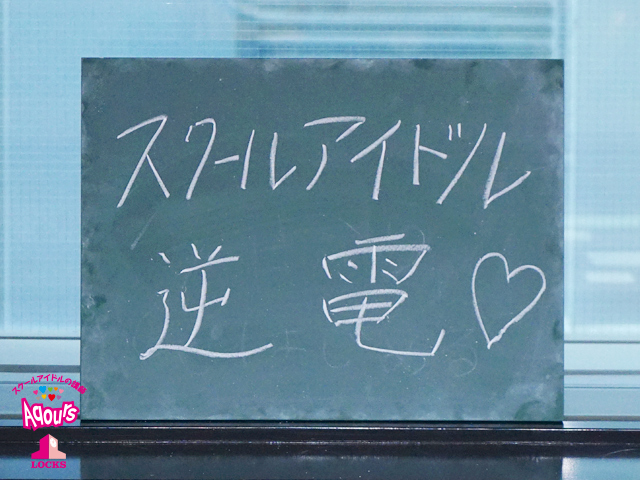 スクールアイドル
逆電♡
スクールアイドルの講師
Aqours
LOCKS